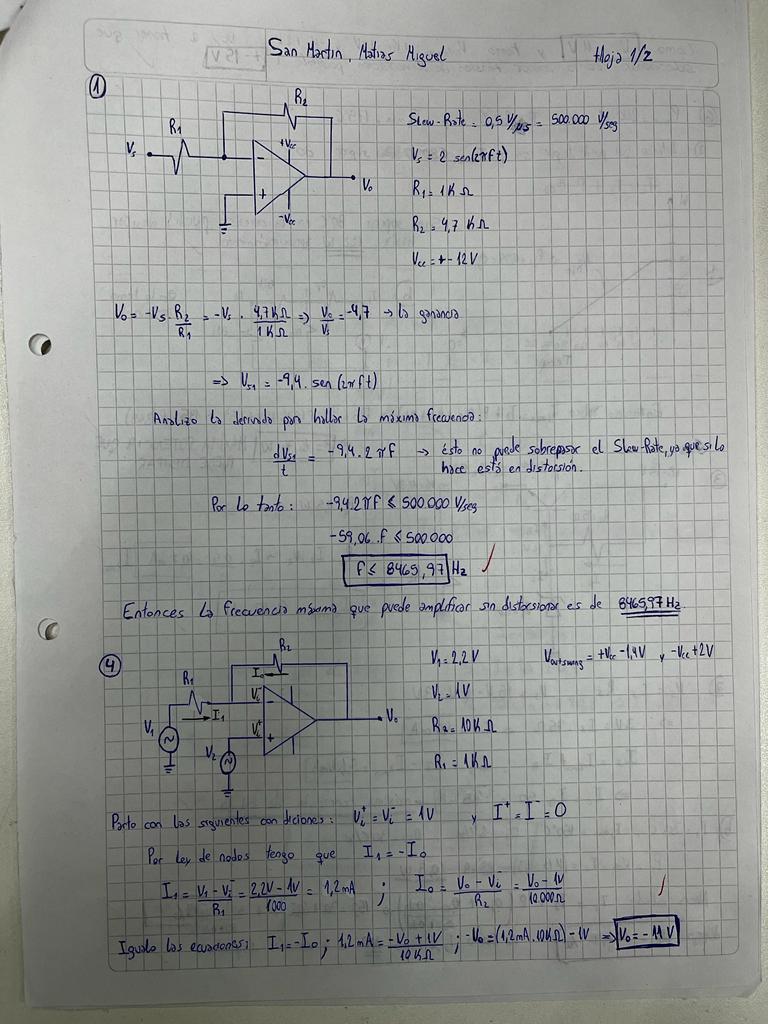 San Martin, Matias Miguel
Hoja 1/2
1
R2
R1
Vs
+Vcc
-
+
-Vcc
Vo
Slew-Rate = 0,5 V/μs = 500.000 V/seg
Vs = 2 sen(2πft)
R1 = 1KΩ
R2 = 4,7 KΩ
Vcc = +- 12V
Vo = -Vs . R2/R1 = -Vs . 4,7KΩ/1KΩ => Vo/Vs = -4,7 → la ganancia
=> Vs1 = -9,4. sen(2πft)
Analizo la derivada para hallar la máxima frecuencia:
dVs1/t = -9,4.2πf → ésto no puede sobrepasar el Slew-Rate, ya que si lo
hace está en distorsión.
Por lo tanto: -9,4.2πf ≤ 500.000 V/seg
-59,06.f ≤ 500.000
f ≤ 8465,97 Hz
Entonces la frecuencia máxima que puede amplificar sin distorsionar es de 8465,97 Hz.
4
R2
Io
R1
I1
Vi-
-
Vi+
+
V1
V2
Vo
V1 = 2,2V
Voutswing = +Vcc -1,4V y -Vcc +2V
V2 = 1V
R2 = 10KΩ
R1 = 1KΩ
Parto con las siguientes condiciones: Vi+ = Vi- = 1V y I+ = I- = 0
Por ley de nodos tengo que I1 = -Io
I1 = V1 - Vi-/R1 = 2,2V - 1V/1000 = 1,2mA ; Io = Vo - Vi-/R2 = Vo - 1V/10.000Ω
Igualo las ecuaciones: I1 = -Io ; 1,2mA = -Vo + 1V/10KΩ ; -Vo = (1,2mA.10KΩ) - 1V => Vo = -11V